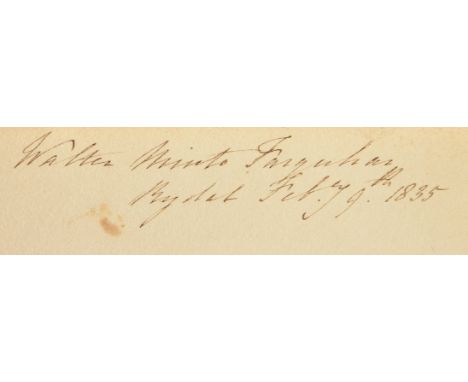 Walter Minto Farquhar
Rydal Feb.ry 9th. 1835